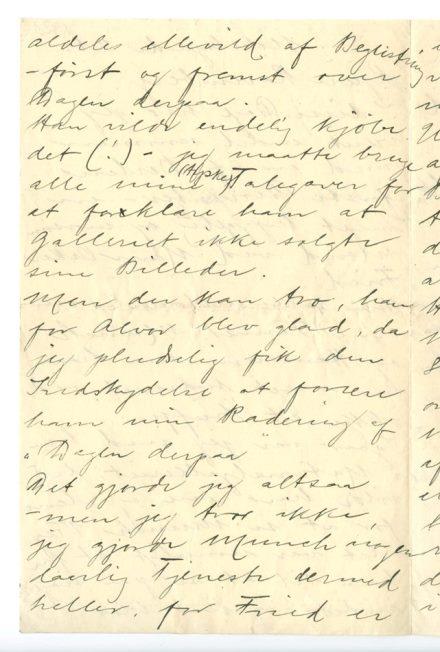 aldeles ellevild af Begeistring
– først og fremst over
Dagen derpaa.
Han vilde endelig kjøbe
det (!) – jeg maatte bruge
alle mine Talegaver for
at forklare ham at
Galleriet ikke solgte
sine Billeder.
Men du kan tro, han
for Alvor blev glad, da
jeg pludselig fik den
Indskydelse at forære
ham min Radering af
"Dagen derpaa"
Det gjorde jeg altsaa
– men jeg tror ikke,
jeg gjorde Munch nogen
daarlig Tjeneste dermed
heller. for Fried er